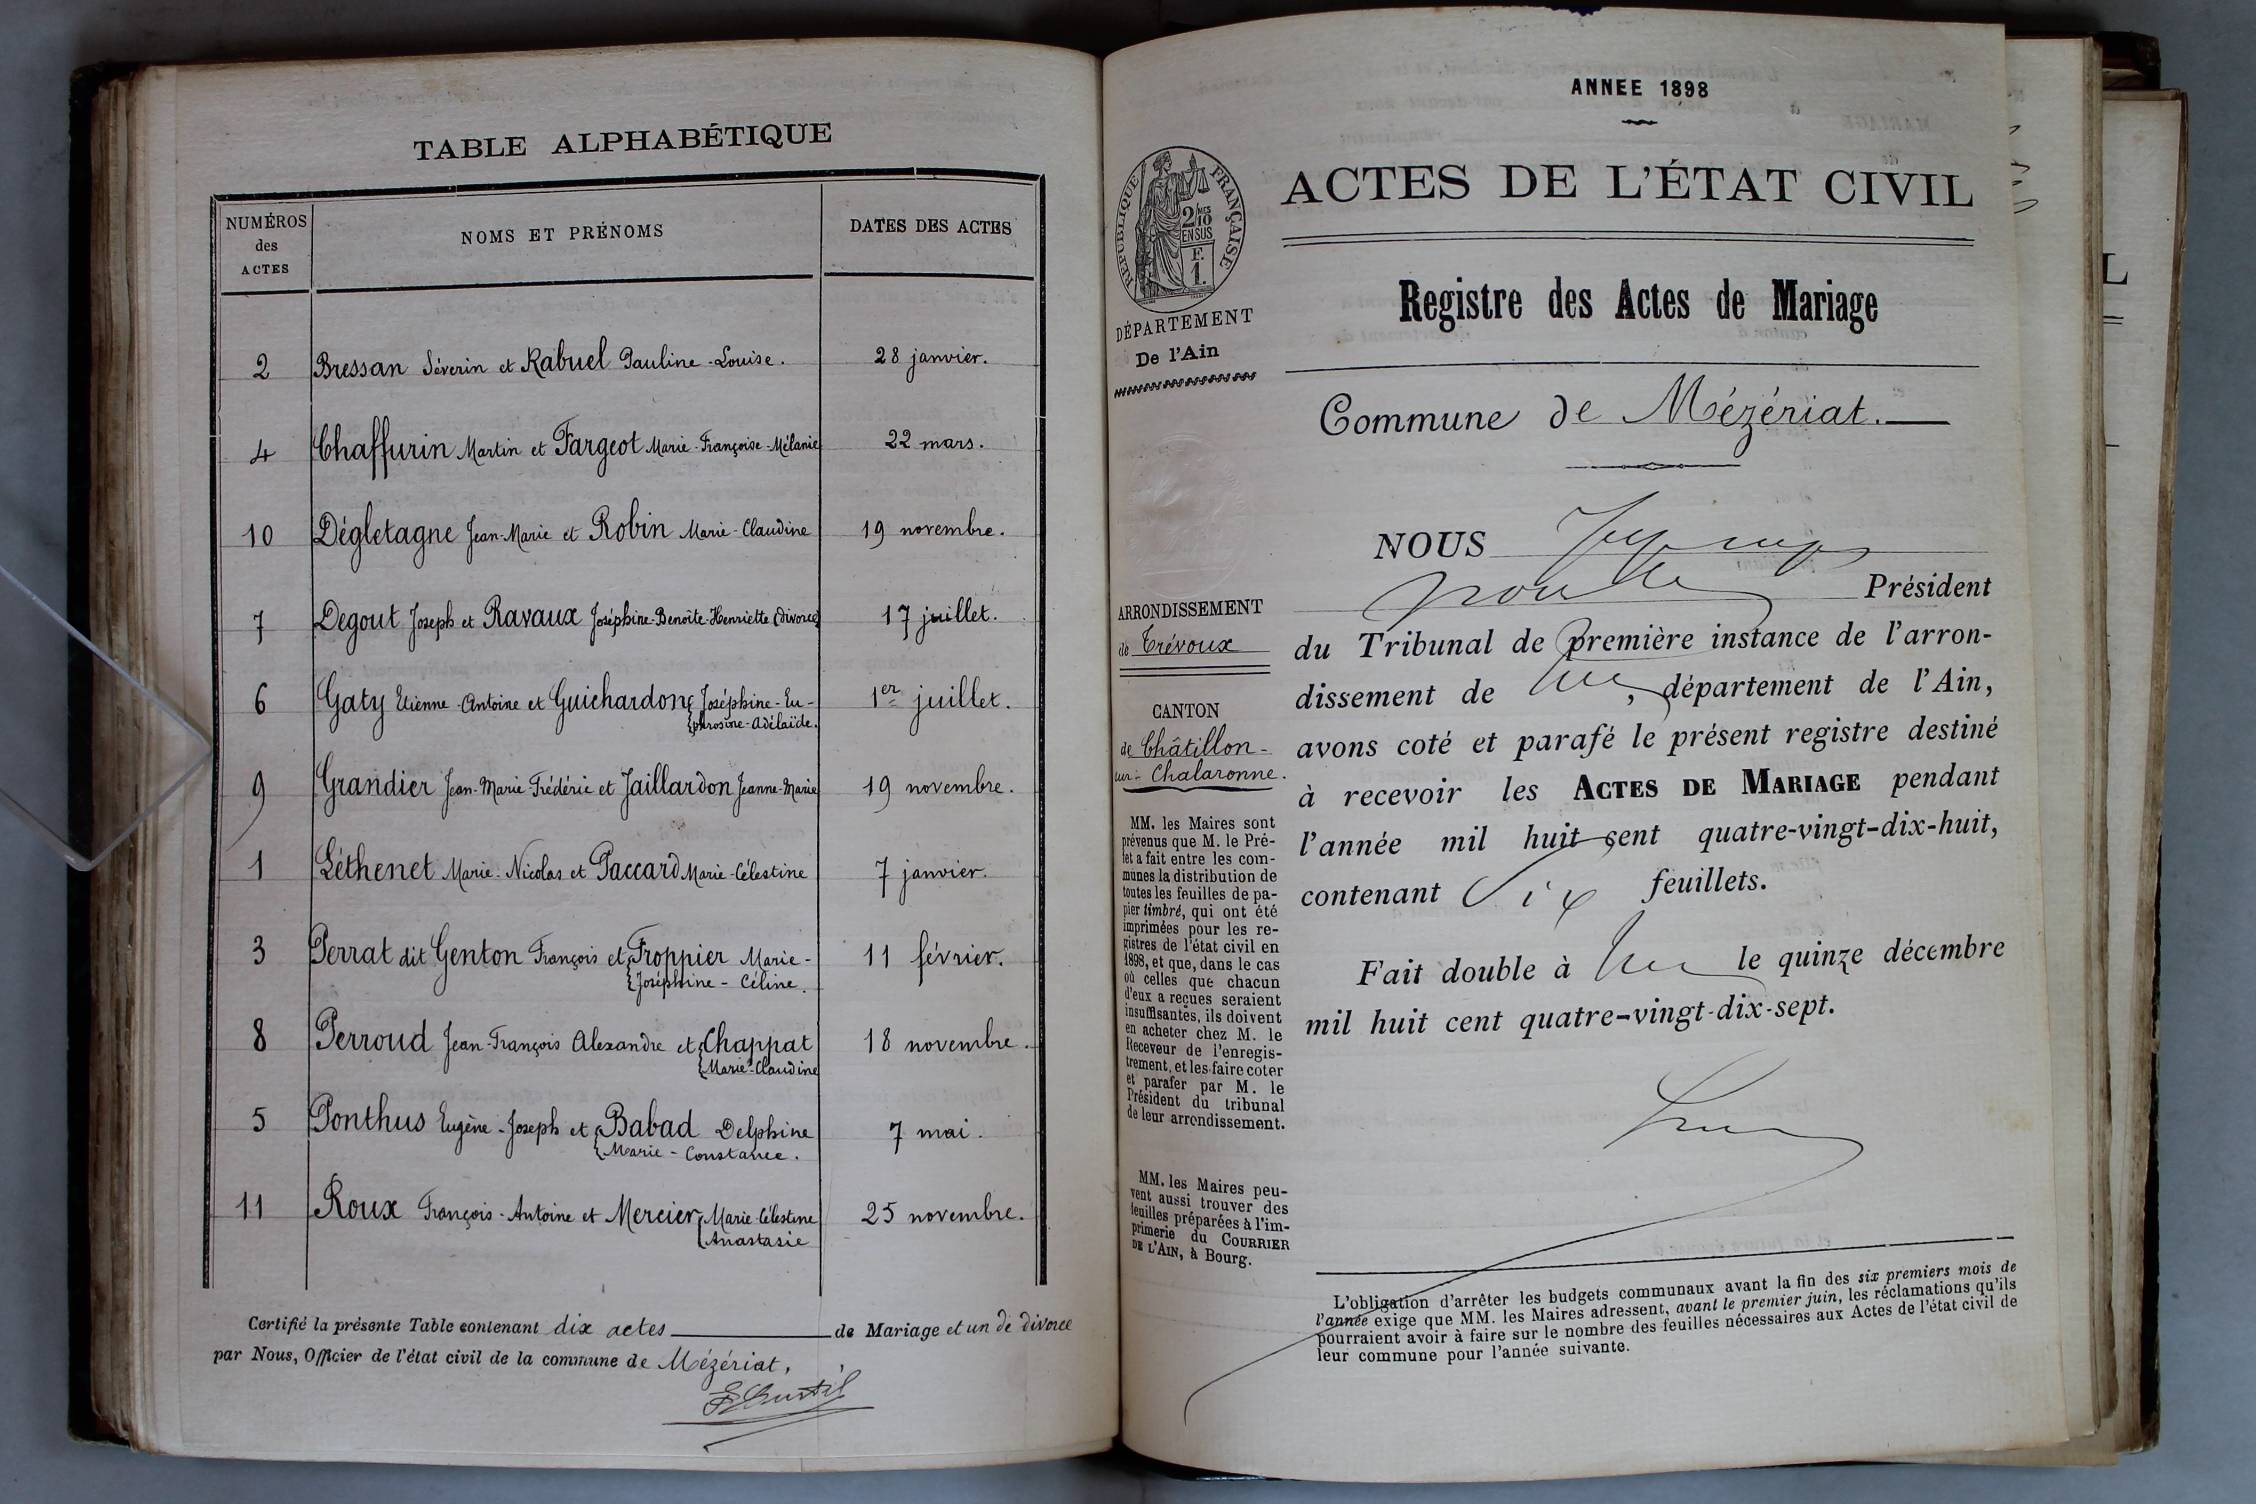 TABLE ALPHABÉTIQUE
NUMÉROS
des
ACTES
NOMS ET PRÉNOMS
DATES DES ACTES
2 Bressan Séverin et Rabuel Pauline-Louise. 28 janvier.
4 Chaffurin Martin et Fargeot Marie-Françoise-Mélanie 22 mars.
10 Dégletagne Jean-Marie et Robin Marie-Claudine 19 novembre.
7 Degout Joseph et Ravaux Joséphine-Benoîte-Henriette (divorce) 17 juillet.
6 Gaty Etienne-Antoine et Guichardon Joséphine-Eu- 1er juillet.
phrosine-Adélaïde.
9 Grandier Jean-Marie-Frédéric et Jaillardon Jeanne-Marie 19 novembre.
1 Léthenet Marie-Nicolas et Paccard Marie-Célestine 7 janvier.
3 Perrat dit Genton François et Froppier Marie- 11 février.
Joséphine-Céline.
8 Perroud Jean-François Alexandre et Chappat 18 novembre.
Marie-Claudine
5 Ponthus Eugène-Joseph et Babad Delphine 7 mai.
Marie-Constance.
11 Roux François-Antoine et Mercier Marie Célestine 25 novembre.
Anastasie
Certifié la présente Table contenant dix actes de Mariage et un de divorce
par Nous, Officier de l'état civil de la commune de Mézériat,
ANNEE 1898
ACTES DE L'ÉTAT CIVIL
RÉPUBLIQUE FRANÇAISE
2/10 MES
EN SUS
F.
1.
DÉPARTEMENT
De l'Ain
Registre des Actes de Mariage
Commune de Mézériat.
ARRONDISSEMENT
de Trévoux
CANTON
de Châtillon-
sur-Chalaronne.
MM. les Maires sont
prévenus que M. le Pré-
fet a fait entre les com-
munes la distribution de
toutes les feuilles de pa-
pier timbré, qui ont été
imprimées pour les re-
gistres de l'état civil en
1898, et que, dans le cas
où celles que chacun
d'eux a reçues seraient
insuffisantes, ils doivent
en acheter chez M. le
Receveur de l'enregis-
trement, et les faire coter
et parafer par M. le
Président du tribunal
de leur arrondissement.
MM. les Maires peu-
vent aussi trouver des
feuilles préparées à l'im-
primerie du COURRIER
DE L'AIN, à Bourg.
NOUS
Président
du Tribunal de première instance de l'arron-
dissement de , département de l'Ain,
avons coté et parafé le présent registre destiné
à recevoir les ACTES DE MARIAGE pendant
l'année mil huit cent quatre-vingt-dix-huit,
contenant Six feuillets.
Fait double à le quinze décembre
mil huit cent quatre-vingt-dix-sept.
L'obligation d'arrêter les budgets communaux avant la fin des six premiers mois de
l'année exige que MM. les Maires adressent, avant le premier juin, les réclamations qu'ils
pourraient avoir à faire sur le nombre des feuilles nécessaires aux Actes de l'état civil de
leur commune pour l'année suivante.